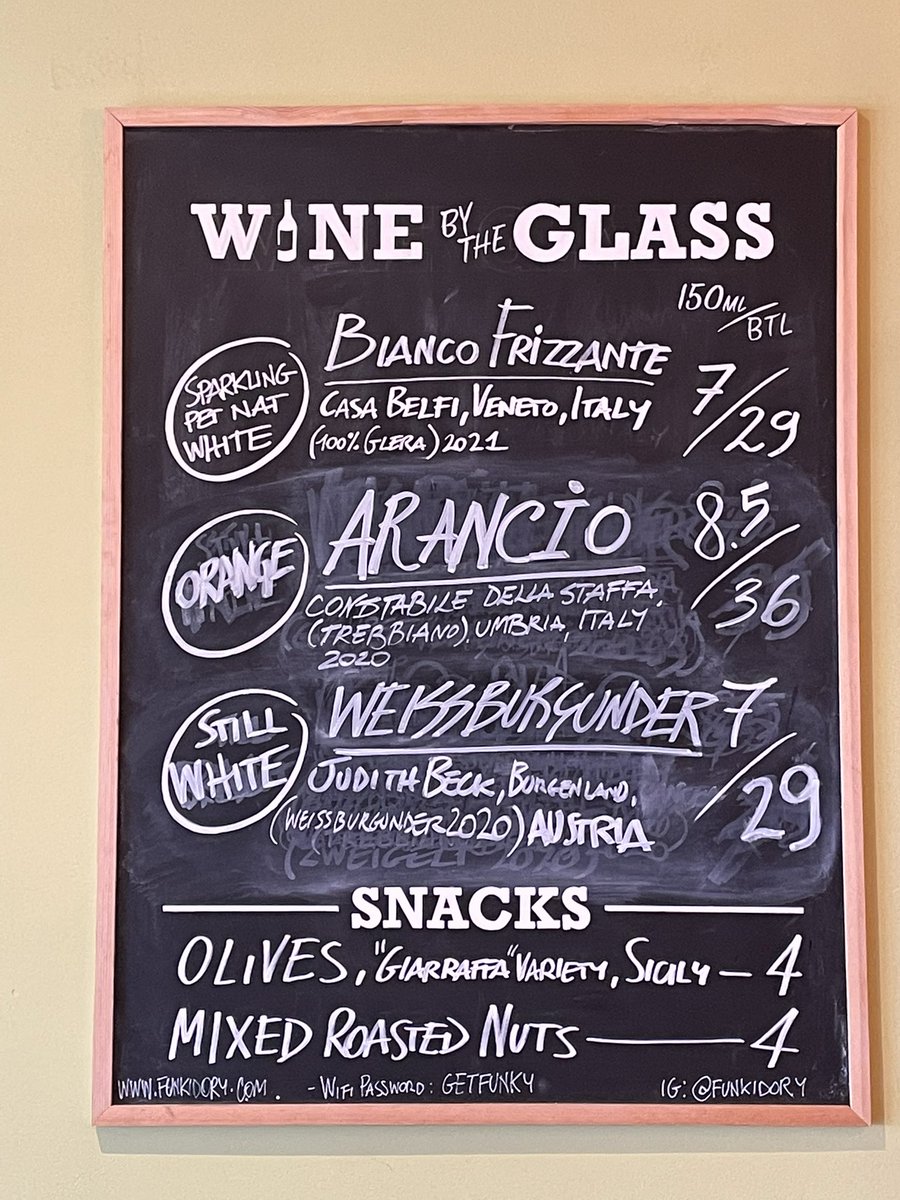 WINE BY THE GLASS
150ML/BTL
SPARKLING
PET NAT
WHITE
BIANCO FRIZZANTE
CASA BELFI, VENETO, ITALY
(100% GLERA) 2021
7/29
ORANGE
ARANCIO
CONSTABILE DELLA STAFFA,
(TREBBIANO). UMBRIA, ITALY
2020
8.5/36
STILL
WHITE
WEISSBURGUNDER
JUDITH BECK, BURGENLAND,
(WEISSBURGUNDER 2020) AUSTRIA
7/29
SNACKS
OLIVES, "GIARRAFFA" VARIETY, SICILY – 4
MIXED ROASTED NUTS — 4
WWW.FUNKIDORY.COM. - WIFI PASSWORD: GETFUNKY IG: @FUNKIDORY